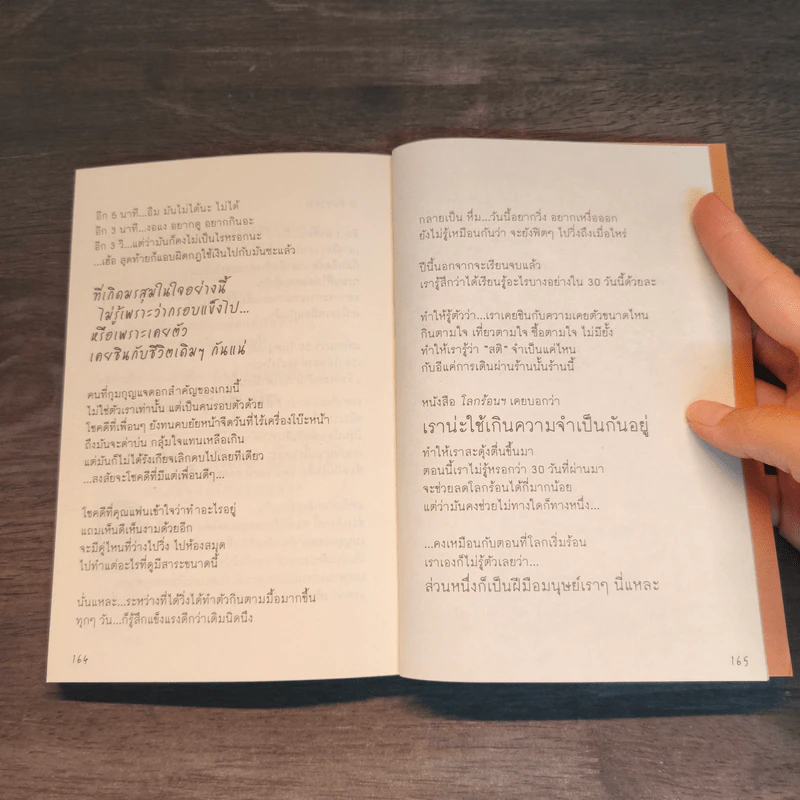 อีก 5 นาที...อืม มันไม่ได้นะ ไม่ได้
อีก 3 นาที...งอแง อยากดู อยากกินอะ
อีก 3 วิ...แต่ว่ามันก็คงไม่เป็นไรหรอกนะ
...เฮ้อ สุดท้ายก็แอบผิดกฎใช้เงินไปกับมันซะแล้ว
ที่เกิดมรสุมในใจอย่างนี้
ไม่รู้เพราะว่ากรอบแข็งไป...
หรือเพราะเคยตัว
เคยชินกับชีวิตเดิมๆ กันแน่
คนที่กุมกุญแจดอกสำคัญของเกมนี้
ไม่ใช่ตัวเราเท่านั้น แต่เป็นคนรอบตัวด้วย
โชคดีที่เพื่อนๆ ยังทนคบยัยหน้าจืดวันที่ไร้เครื่องโบ๊ะหน้า
ถึงมันจะด่าบ่น กลุ้มใจแทนเหลือเกิน
แต่มันก็ไม่ได้รังเกียจเลิกคบไปเลยทีเดียว
...สงสัยจะโชคดีที่มีแต่เพื่อนดีๆ...
โชคดีที่คุณแฟนเข้าใจว่าทำอะไรอยู่
แถมเห็นดีเห็นงามด้วยอีก
จะมีคู่ไหนที่ว่างไปวิ่ง ไปห้องสมุด
ไปทำแต่อะไรที่ดูมีสาระขนาดนี้
นั่นแหละ...ระหว่างที่ได้วิ่งได้ทำตัวกินตามมื้อมากขึ้น
ทุกๆ วัน...ก็รู้สึกแข็งแรงดีกว่าเดิมนิดนึง
164
กลายเป็น หึ่ม...วันนี้อยากวิ่ง อยากเหงื่อออก
ยังไม่รู้เหมือนกันว่า จะยังฟิตๆ ไปวิ่งถึงเมื่อไหร่
ปีนี้นอกจากจะเรียนจบแล้ว
เรารู้สึกว่าได้เรียนรู้อะไรบางอย่างใน 30 วันนี้ด้วยละ
ทำให้รู้ตัวว่า...เราเคยชินกับความเคยตัวขนาดไหน
กินตามใจ เที่ยวตามใจ ซื้อตามใจ ไม่มียั้ง
ทำให้เรารู้ว่า "สติ" จำเป็นแค่ไหน
กับอีแค่การเดินผ่านร้านนั้นร้านนี้
หนังสือ โลกร้อนฯ เคยบอกว่า
เราน่ะใช้เกินความจำเป็นกันอยู่
ทำให้เราสะดุ้งตื่นขึ้นมา
ตอนนี้เราไม่รู้หรอกว่า 30 วันที่ผ่านมา
จะช่วยลดโลกร้อนได้กี่มากน้อย
แต่ว่ามันคงช่วยไม่ทางใดก็ทางหนึ่ง...
...คงเหมือนกับตอนที่โลกเริ่มร้อน
เราเองก็ไม่รู้ตัวเลยว่า...
ส่วนหนึ่งก็เป็นฝีมือมนุษย์เราๆ นี่แหละ
165